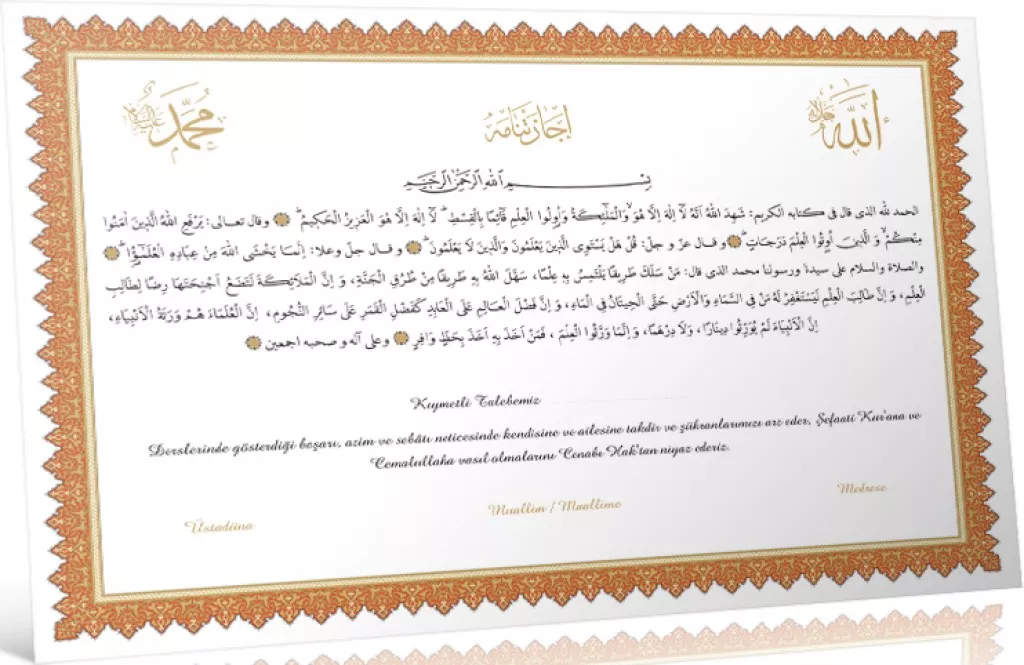 الله جل جلاله
اجازتنامه
محمد عليه السلام
بِسْــــــمِ اللهِ الرَّحْمٰنِ الرَّحِيمِ
الحمد لله الذى قال فى كتابه الكريم: شَهِدَ اللهُ اَنَّهُ لَا اِلٰهَ اِلَّا هُوَ وَالْمَلٰئِكَةُ وَاُولُوا الْعِلْمِ قَائِمًا بِالْقِسْطِ لَا اِلٰهَ اِلَّا هُوَ الْعَزِيزُ الْحَكِيمُ ۞ وقال تعالى: يَرْفَعِ اللهُ الَّذِينَ اٰمَنُوا
مِنْكُمْ وَالَّذِينَ اُوتُوا الْعِلْمَ دَرَجَاتٍ ۞ و قال عزّ و جلّ: قُلْ هَلْ يَسْتَوِى الَّذِينَ يَعْلَمُونَ وَالَّذِينَ لَا يَعْلَمُونَ ۞ و قال جلّ وعلا: اِنَّمَا يَخْشَى اللهَ مِنْ عِبَادِهِ الْعُلَمٰٓؤُا ۞
والصلاة والسلام على سيدنا ورسولنا محمد الذى قال: مَنْ سَلَكَ طَرِيقًا يَلْتَمِسُ بِهِ عِلْمًا، سَهَّلَ اللهُ بِهِ طَرِيقًا مِنْ طُرُقِ الْجَنَّةِ، وَ اِنَّ الْمَلَائِكَةَ لَتَضَعُ اَجْنِحَتَهَا رِضًا لِطَالِبِ
الْعِلْمِ، وَ اِنَّ طَالِبَ الْعِلْمِ لَيَسْتَغْفِرُ لَهُ مَنْ فِى السَّمَاءِ وَالْاَرْضِ حَتَّى الْحِيتَانُ فِى الْمَاءِ، وَ اِنَّ فَضْلَ الْعَالِمِ عَلَى الْعَابِدِ كَفَضْلِ الْقَمَرِ عَلَى سَائِرِ النُّجُومِ، اِنَّ الْعُلَمَاءَ هُمْ وَرَثَةُ الْاَنْبِيَاءِ،
اِنَّ الْاَنْبِيَاءَ لَمْ يُوَرِّثُوا دِينَارًا، وَلَا دِرْهَمًا، وَ اِنَّمَا وَرَّثُوا الْعِلْمَ ، فَمَنْ اَخَذَ بِهِ اَخَذَ بِحَظٍّ وَافِرٍ ۞ وعلى آله و صحبه اجمعين ۞
Kıymetli Talebemiz
Derslerinde gösterdiği başarı, azim ve sebâtı neticesinde kendisine ve ailesine takdir ve şükranlarımızı arz eder, Şefaati Kur'ana ve
Cemalullaha vasıl olmalarını Cenabı Hak'tan niyaz ederiz.
Üstadüna
Muallim / Muallime
Medrese